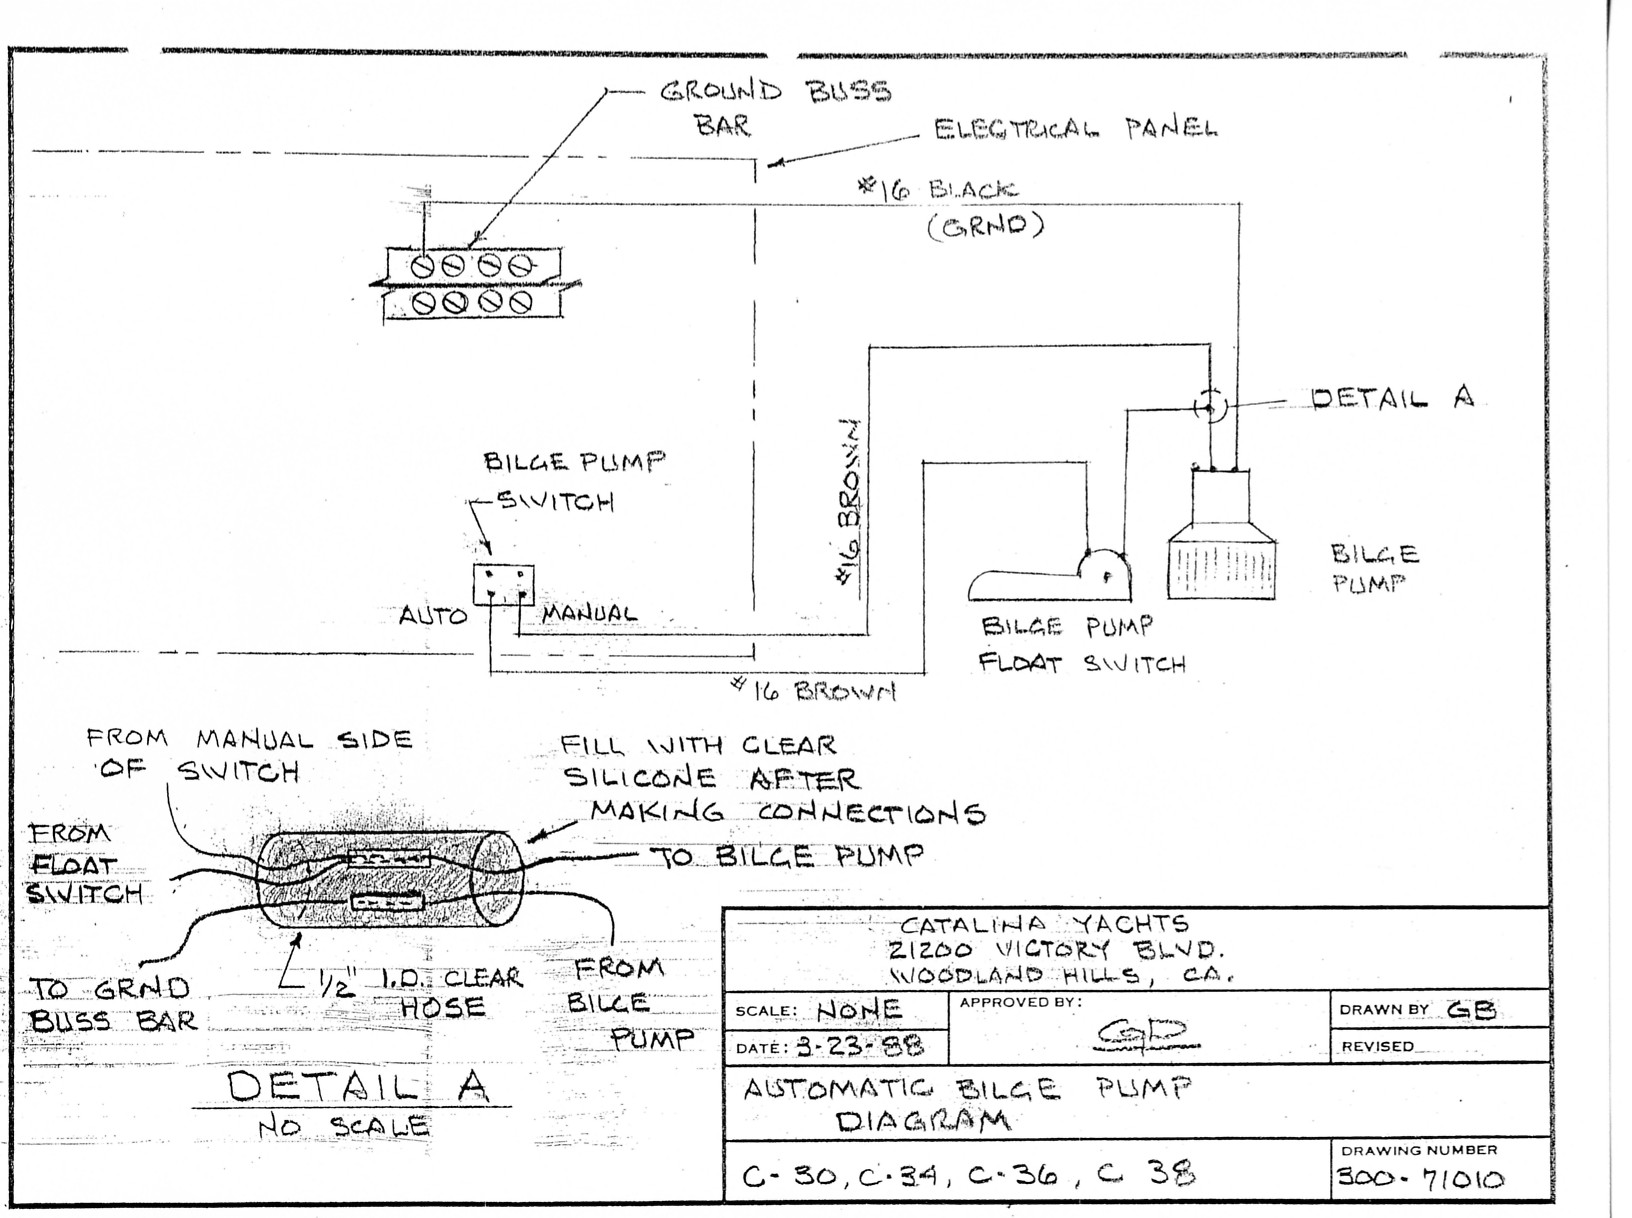 GROUND BUSS
BAR
ELECTRICAL PANEL
#16 BLACK
(GRND)
DETAIL A
BILGE PUMP
SWITCH
#16 BROWN
AUTO
MANUAL
BILGE
PUMP
BILGE PUMP
FLOAT SWITCH
#16 BROWN
FROM MANUAL SIDE
OF SWITCH
FILL WITH CLEAR
SILICONE AFTER
MAKING CONNECTIONS
FROM
FLOAT
SWITCH
TO BILGE PUMP
TO GRND
BUSS BAR
1/2" I.D. CLEAR
HOSE
FROM
BILGE
PUMP
DETAIL A
NO SCALE
CATALINA YACHTS
21200 VICTORY BLVD.
WOODLAND HILLS, CA.
SCALE: NONE
APPROVED BY:
DRAWN BY GB
DATE: 3-23-88
REVISED
AUTOMATIC BILGE PUMP
DIAGRAM
C-30, C-34, C-36, C 38
DRAWING NUMBER
300-71010